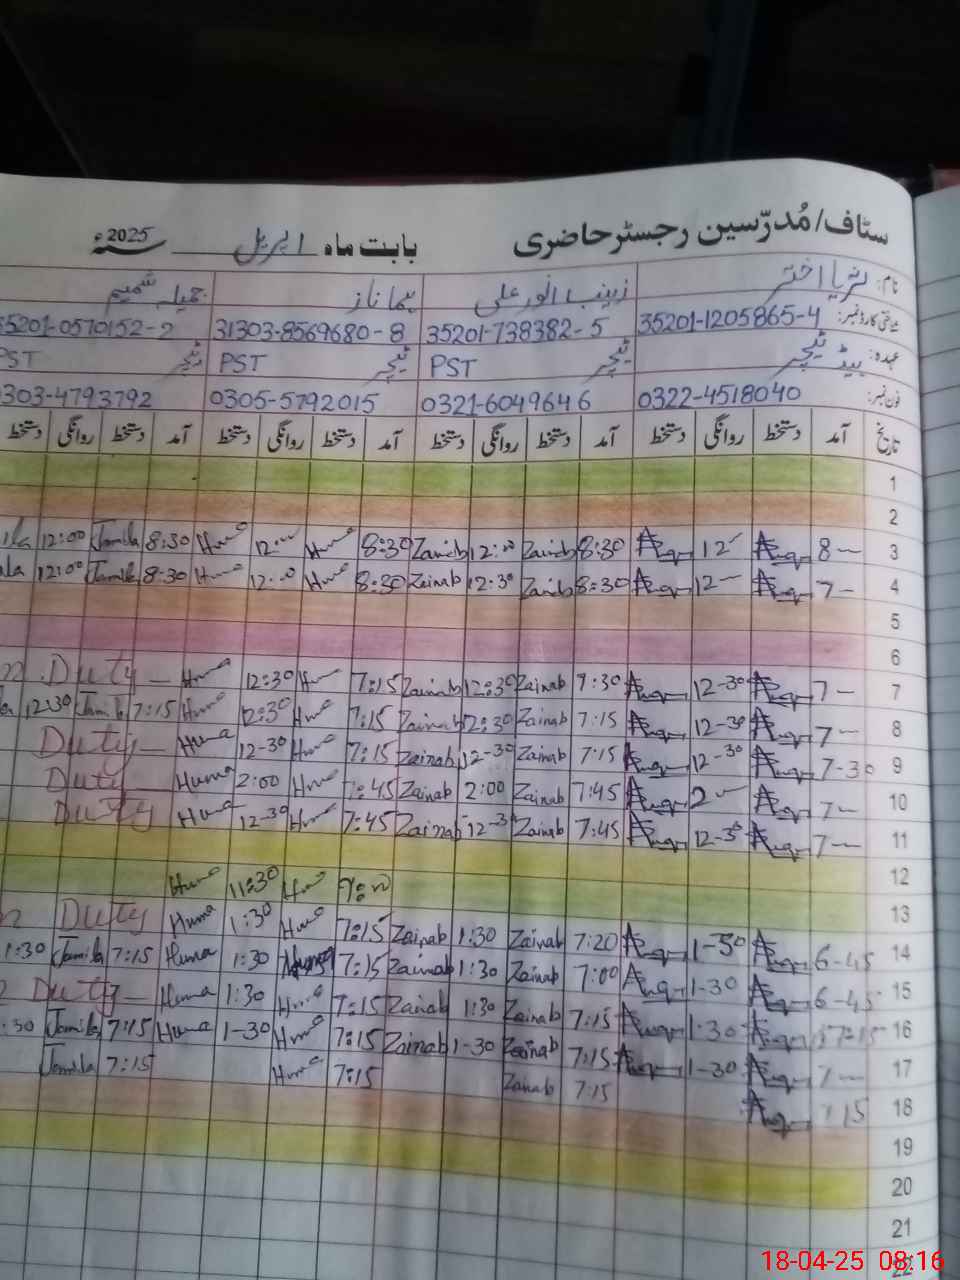 سٹاف/مُدرّسین رجسٹر حاضری بابت ماہ اپریل سنہ 2025ء
نام: ثریا اختر زینب انور علی ہما ناز جمیلہ شمیم
شناختی کارڈ نمبر: 35201-1205865-4 35201-738382-5 31303-8569680-8 35201-0570152-2
عہدہ: ہیڈ ٹیچر PST ٹیچر PST ٹیچر PST ٹیچر
فون نمبر: 0322-4518040 0321-6049646 0305-5792015 0303-4793792
تاریخ آمد دستخط روانگی دستخط آمد دستخط روانگی دستخط آمد دستخط روانگی دستخط آمد دستخط روانگی دستخط
1
2
3 8 12 8:30 Zainab 12:00 Zainab 8:30 Huma 12:00 Huma 8:30 Jamila 12:00
4 7 12 8:30 Zainab 12:30 Zainab 8:30 Huma 12:00 Huma 8:30 Jamila 12:00
5
6
7 7 12-30 7:30 Zainab 12:30 Zainab 7:15 Huma 12:30 Huma Duty
8 7 12-30 7:15 Zainab 12:30 Zainab 7:15 Huma 12:30 Huma 7:15 Jamila 12:30
9 7-30 12-30 7:15 Zainab 12-30 Zainab 7:15 Huma 12-30 Huma Duty
10 7 2 7:45 Zainab 2:00 Zainab 7:45 Huma 2:00 Huma Duty
11 7 12-30 7:45 Zainab 12-30 Zainab 7:45 Huma 12-30 Huma Duty
12
13 Huma 11:30 Huma
14 6-45 1-30 7:20 Zainab 1:30 Zainab 7:15 Huma 1:30 Huma Duty
15 6-45 1-30 7:00 Zainab 1:30 Zainab 7:15 Huma 1:30 Huma 7:15 Jamila 1:30
16 7-15 1:30 7:15 Zainab 1:30 Zainab 7:15 Huma 1:30 Huma Duty
17 7 1-30 7:15 Zainab 1-30 Zainab 7:15 Huma 1-30 Huma 7:15 Jamila
18 7:15 7:15 Zainab 7:15 Huma 7:15 Jamila
19
20
21
22
18-04-25 08:16